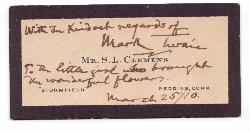 With the kindest regards of
Mark Twain
MR. S. L. CLEMENS
To the little girl who brought
the wonderful flowers.
STORMFIELD REDDING, CONN.
March 25/10.